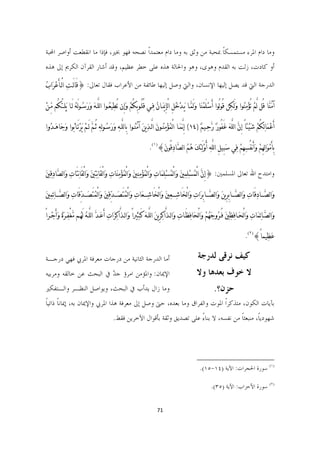 وما دام المرء مستمسكاً بمحبة من وثق به وما دام معتمداً نصحه فهو بخير، فإذا ما انقطعت أواصر المحبة
أو كادت، زلت به القدم وهوى، وهو والحالة هذه على خطر عظيم، وقد أشار القرآن الكريم إلى هذه
الدرجة التي قد يصل إليها الإنسان، والتي وصل إليها طائفة من الأعراب، فقال تعالى: ﴿ قَالَتِ الْأَعْرَابُ
آمَنَّا قُل لَّمْ تُؤْمِنُوا وَلَكِن قُولُوا أَسْلَمْنَا وَلَمَّا يَدْخُلِ الْإِيمَانُ فِي قُلُوبِكُمْ وَإِن تُطِيعُوا اللَّهَ وَرَسُولَهُ لَا يَلِتْكُم مِّنْ
أَعْمَالِكُمْ شَيْئاً إِنَّ اللَّهَ غَفُورٌ رَّحِيمٌ (١٤) إِنَّمَا الْمُؤْمِنُونَ الَّذِينَ آمَنُوا بِاللَّهِ وَرَسُولِهِ ثُمَّ لَمْ يَرْتَابُوا وَجَاهَدُوا
بِأَمْوَالِهِمْ وَأَنفُسِهِمْ فِي سَبِيلِ اللَّهِ أُوْلَئِكَ هُمُ الصَّادِقُونَ ﴾ (١).
وامتدح الله تعالى المسلمين: ﴿ إِنَّ الْمُسْلِمِينَ وَالْمُسْلِمَاتِ وَالْمُؤْمِنِينَ وَالْمُؤْمِنَاتِ وَالْقَانِتِينَ وَالْقَانِتَاتِ وَالصَّادِقِينَ
وَالصَّادِقَاتِ وَالصَّابِرِينَ وَالصَّابِرَاتِ وَالْخَاشِعِينَ وَالْخَاشِعَاتِ وَالْمُتَصَدِّقِينَ وَالْمُتَصَدِّقَاتِ وَالصَّائِمِينَ
وَالصَّائِمَاتِ وَالْحَافِظِينَ فُرُوجَهُمْ وَالْحَافِظَاتِ وَالذَّاكِرِينَ اللَّهَ كَثِيرًا وَالذَّاكِرَاتِ أَعَدَّ اللَّهُ لَهُم مَّغْفِرَةً وَأَجْرًا
عَظِيماً ﴾ (٢).
كيف نرقى لدرجة
لا خوف بعدها ولا
حزن؟.
أما الدرجة الثانية من درجات معرفة المربي فهي درجة
الإيمان: والمؤمن امرؤ جدَّ في البحث عن خالقه ومربيه
وما زال يدأب في البحث، ويواصل النظر والتفكير
بآيات الكون، متذكراً الموت والفراق وما بعده، حتى وصل إلى معرفة هذا المربي والإيمان به، إيماناً ذاتياً
شهودياً، منبعثاً من نفسه، لا بناءً على تصديق وثقة بأقوال الآخرين فقط.
(١) سورة الحجرات: الآية (١٤-١٥).
(٢) سورة الأحزاب: الآية (٣٥).
71